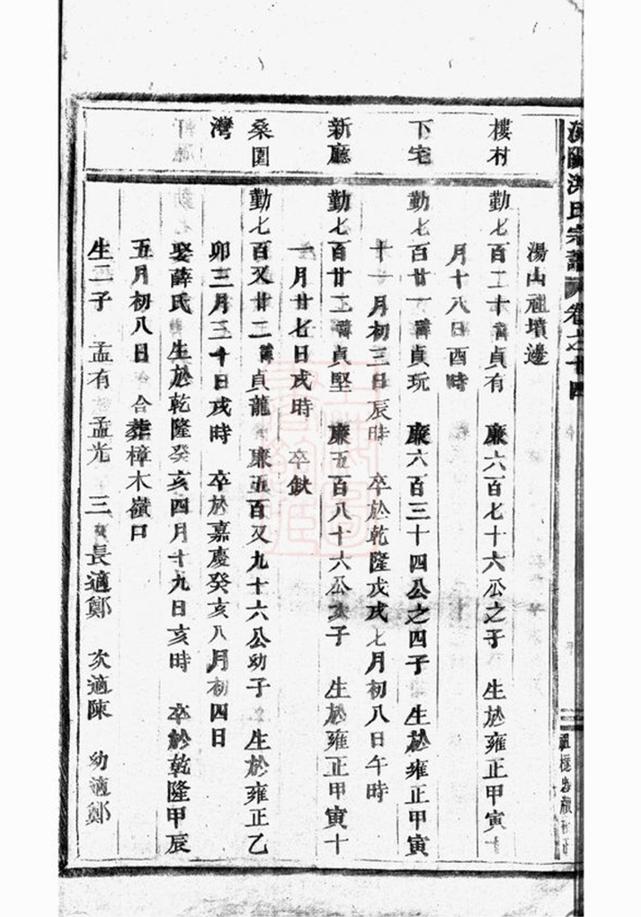 氏宗譜 卷之十四
湯山祖墳邊
樓村
勤七百二十 諱貞有 廉六百七十六公之子 生於雍正甲寅十
月十八日酉時
下宅
勤七百廿一 諱貞玩 廉六百三十四公之四子 生於雍正甲寅
十一月初三日辰時 卒於乾隆戊戌七月初八日午時
新廳
勤七百廿二 諱貞堅 廉五百八十六公次子 生於雍正甲寅十
一月廿七日戌時 卒缺
桑園
勤七百又廿二 諱貞龍 廉五百又九十六公幼子 生於雍正乙
灣
卯三月三十日戌時 卒於嘉慶癸亥八月初四日
娶薛氏 生於乾隆癸亥四月十九日亥時 卒於乾隆甲辰
五月初八日 合葬樟木嶺口
生二子 孟有 孟光 三女 長適鄭 次適陳 幼適鄭